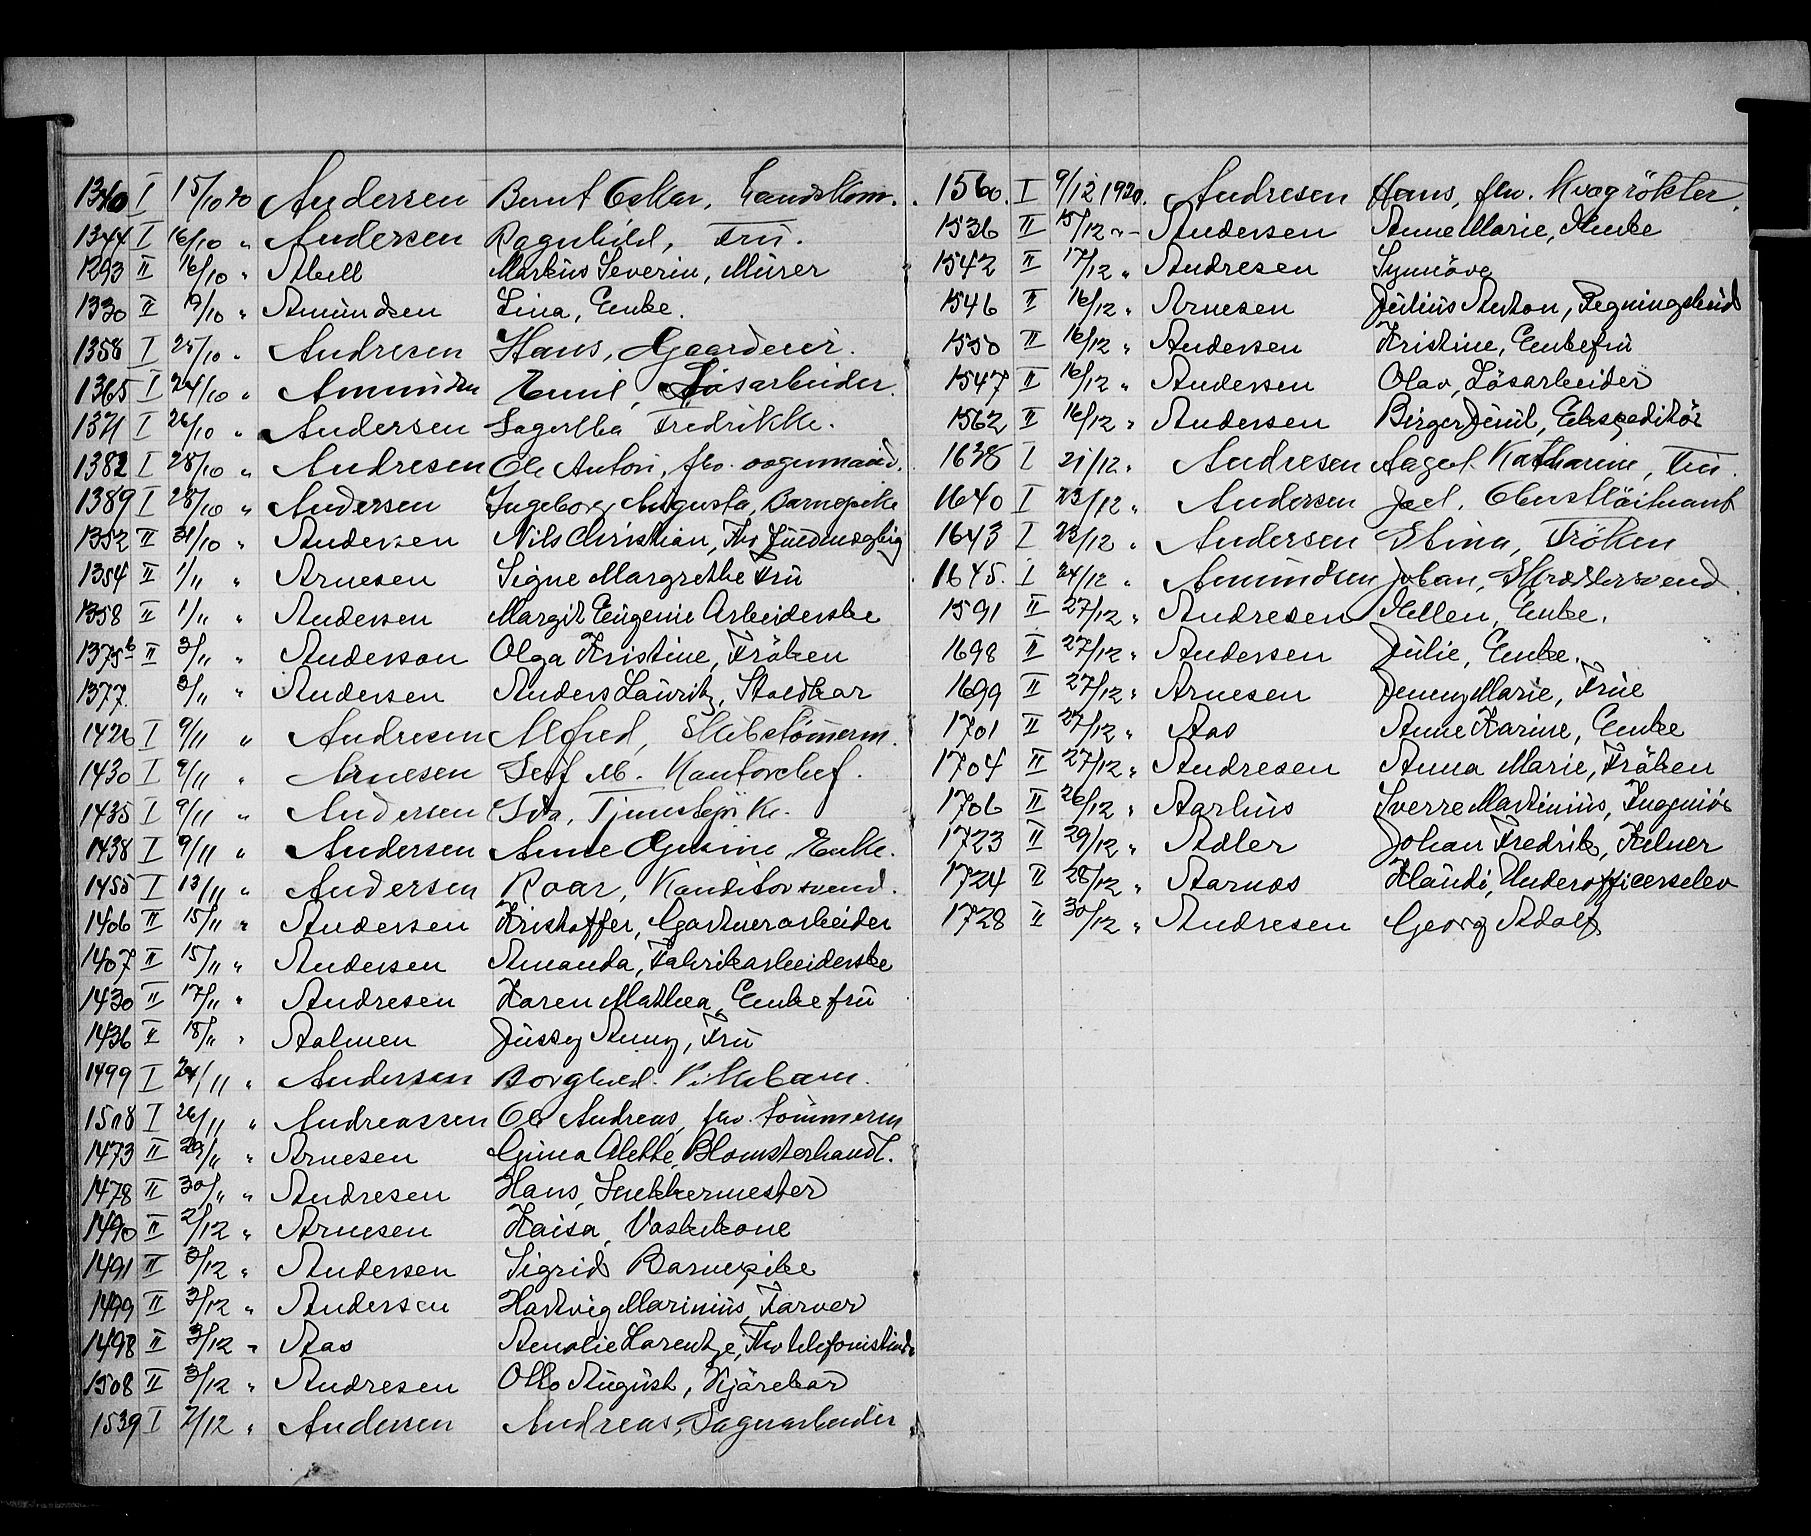 1340 I 15/10 20 Andersen Bernt Oskar,
1344 I 16/10 " Andersen Ragnhild, Fru.
1293 II 16/10 " Abell Markus Severin, Murer
1330 II 19/10 " Amundsen Lina, Enke.
1358 I 25/10 " Andresen Hans, Gaardeier.
1365 I 24/10 " Amundsen Emil, Løsarbeider.
1371 I 26/10 " Andersen Fredrikke.
1382 I 28/10 " Andresen Ole Anton, fhv. vognmand.
1389 I 28/10 " Andersen Ingeborg Augusta, Barnepike
1352 II 31/10 " Andersen Nils Christian, Fhv
1354 II 1/11 " Arnesen Signe Margrethe Fru
1358 II 1/11 " Andersen Margit Eugenie Arbeiderske
1375b II 3/11 " Anderson Olga Kristine, Fröken
1377. 3/11 " Andersen Anders Lauritz, Staldkar
1426 I 9/11 " Andresen Alfred, Skibstömmerm.
1430 I 9/11 " Arnesen Leif M. Kontorchef.
1435 I 9/11 " Andersen Ida, Tjenestepike.
1438 I 9/11 " Andersen Anne Gurine, Enke.
1455 I 13/11 " Andersen Roar, Konditorsvend.
1406 II 15/11 " Andersen Kristoffer, Gartnerarbeider
1407 II 15/11 " Andersen Amanda, Fabrikarbeiderske
1430 II 17/11 " Andresen Karen Mathea, Enkefru
1436 II 18/11 " Aalmen Jussy Anny, Fru
1499 I 24/11 " Andersen Borghild. Pikebarn.
1508 I 26/11 " Andreassen Ole Andreas, fhv. tömmerm
1473 II 29/11 " Arnesen Gina Alette, Blomsterhandl.
1478 II 30/11 " Andresen Hans, Snekkermester
1490 II 2/12 " Arnesen Kaisa, Vaskekone
1491 II 3/12 " Andersen Sigrid Barnepike
1499 II 3/12 " Andersen Hartvig Marinius, Farver
1498 II 3/12 " Aas Amalie Larentze, Fhv telefonistinde
1508 II 3/12 " Andresen Otto August, Kjörekar
1539 I 7/12 " Andersen Andreas, Sagarbeider
1560. I 9/12 1920. Andresen Hans, fhv. Kvægrökter.
1536 II 15/12 " - Andersen Anne Marie, Enke
1542 II 17/12 " Andresen Synnöve
1546 II 16/12 " Arnesen Julius Anton, Regningsbud
1550 II 16/12 " Andersen Kristine, Enkefru
1547 II 16/12 " Andersen Olav, Lösarbeider
1562 II 16/12 " Andersen Birger Juul, Ekspeditör
1638 I 21/12 " Andresen Aagot Katharine, Fru.
1640 I 23/12 " Andersen Joel. Oberstlöitnant
1643 I 23/12 " Andersen Stina, Fröken
1645. I 24/12 " Amundsen Johan, Skræddersvend.
1591 II 27/12 " Andresen Hellen, Enke.
1698 II 27/12 " Andersen Julie, Enke.
1699 II 27/12 " Arnesen Jenny Marie, Frue
1701 II 27/12 " Aas Anne Karine, Enke
1704 II 27/12 " Andresen Anna Marie, Fröken
1706 II 26/12 " Aarhus Sverre Martinius, Ingeniör
1723 II 29/12 " Adler Johan Fredrik, Kelner
1724 II 28/12 " Aarnæs Klaudi, Underofficerselev
1728 II 30/12 " Andresen Georg Adolf